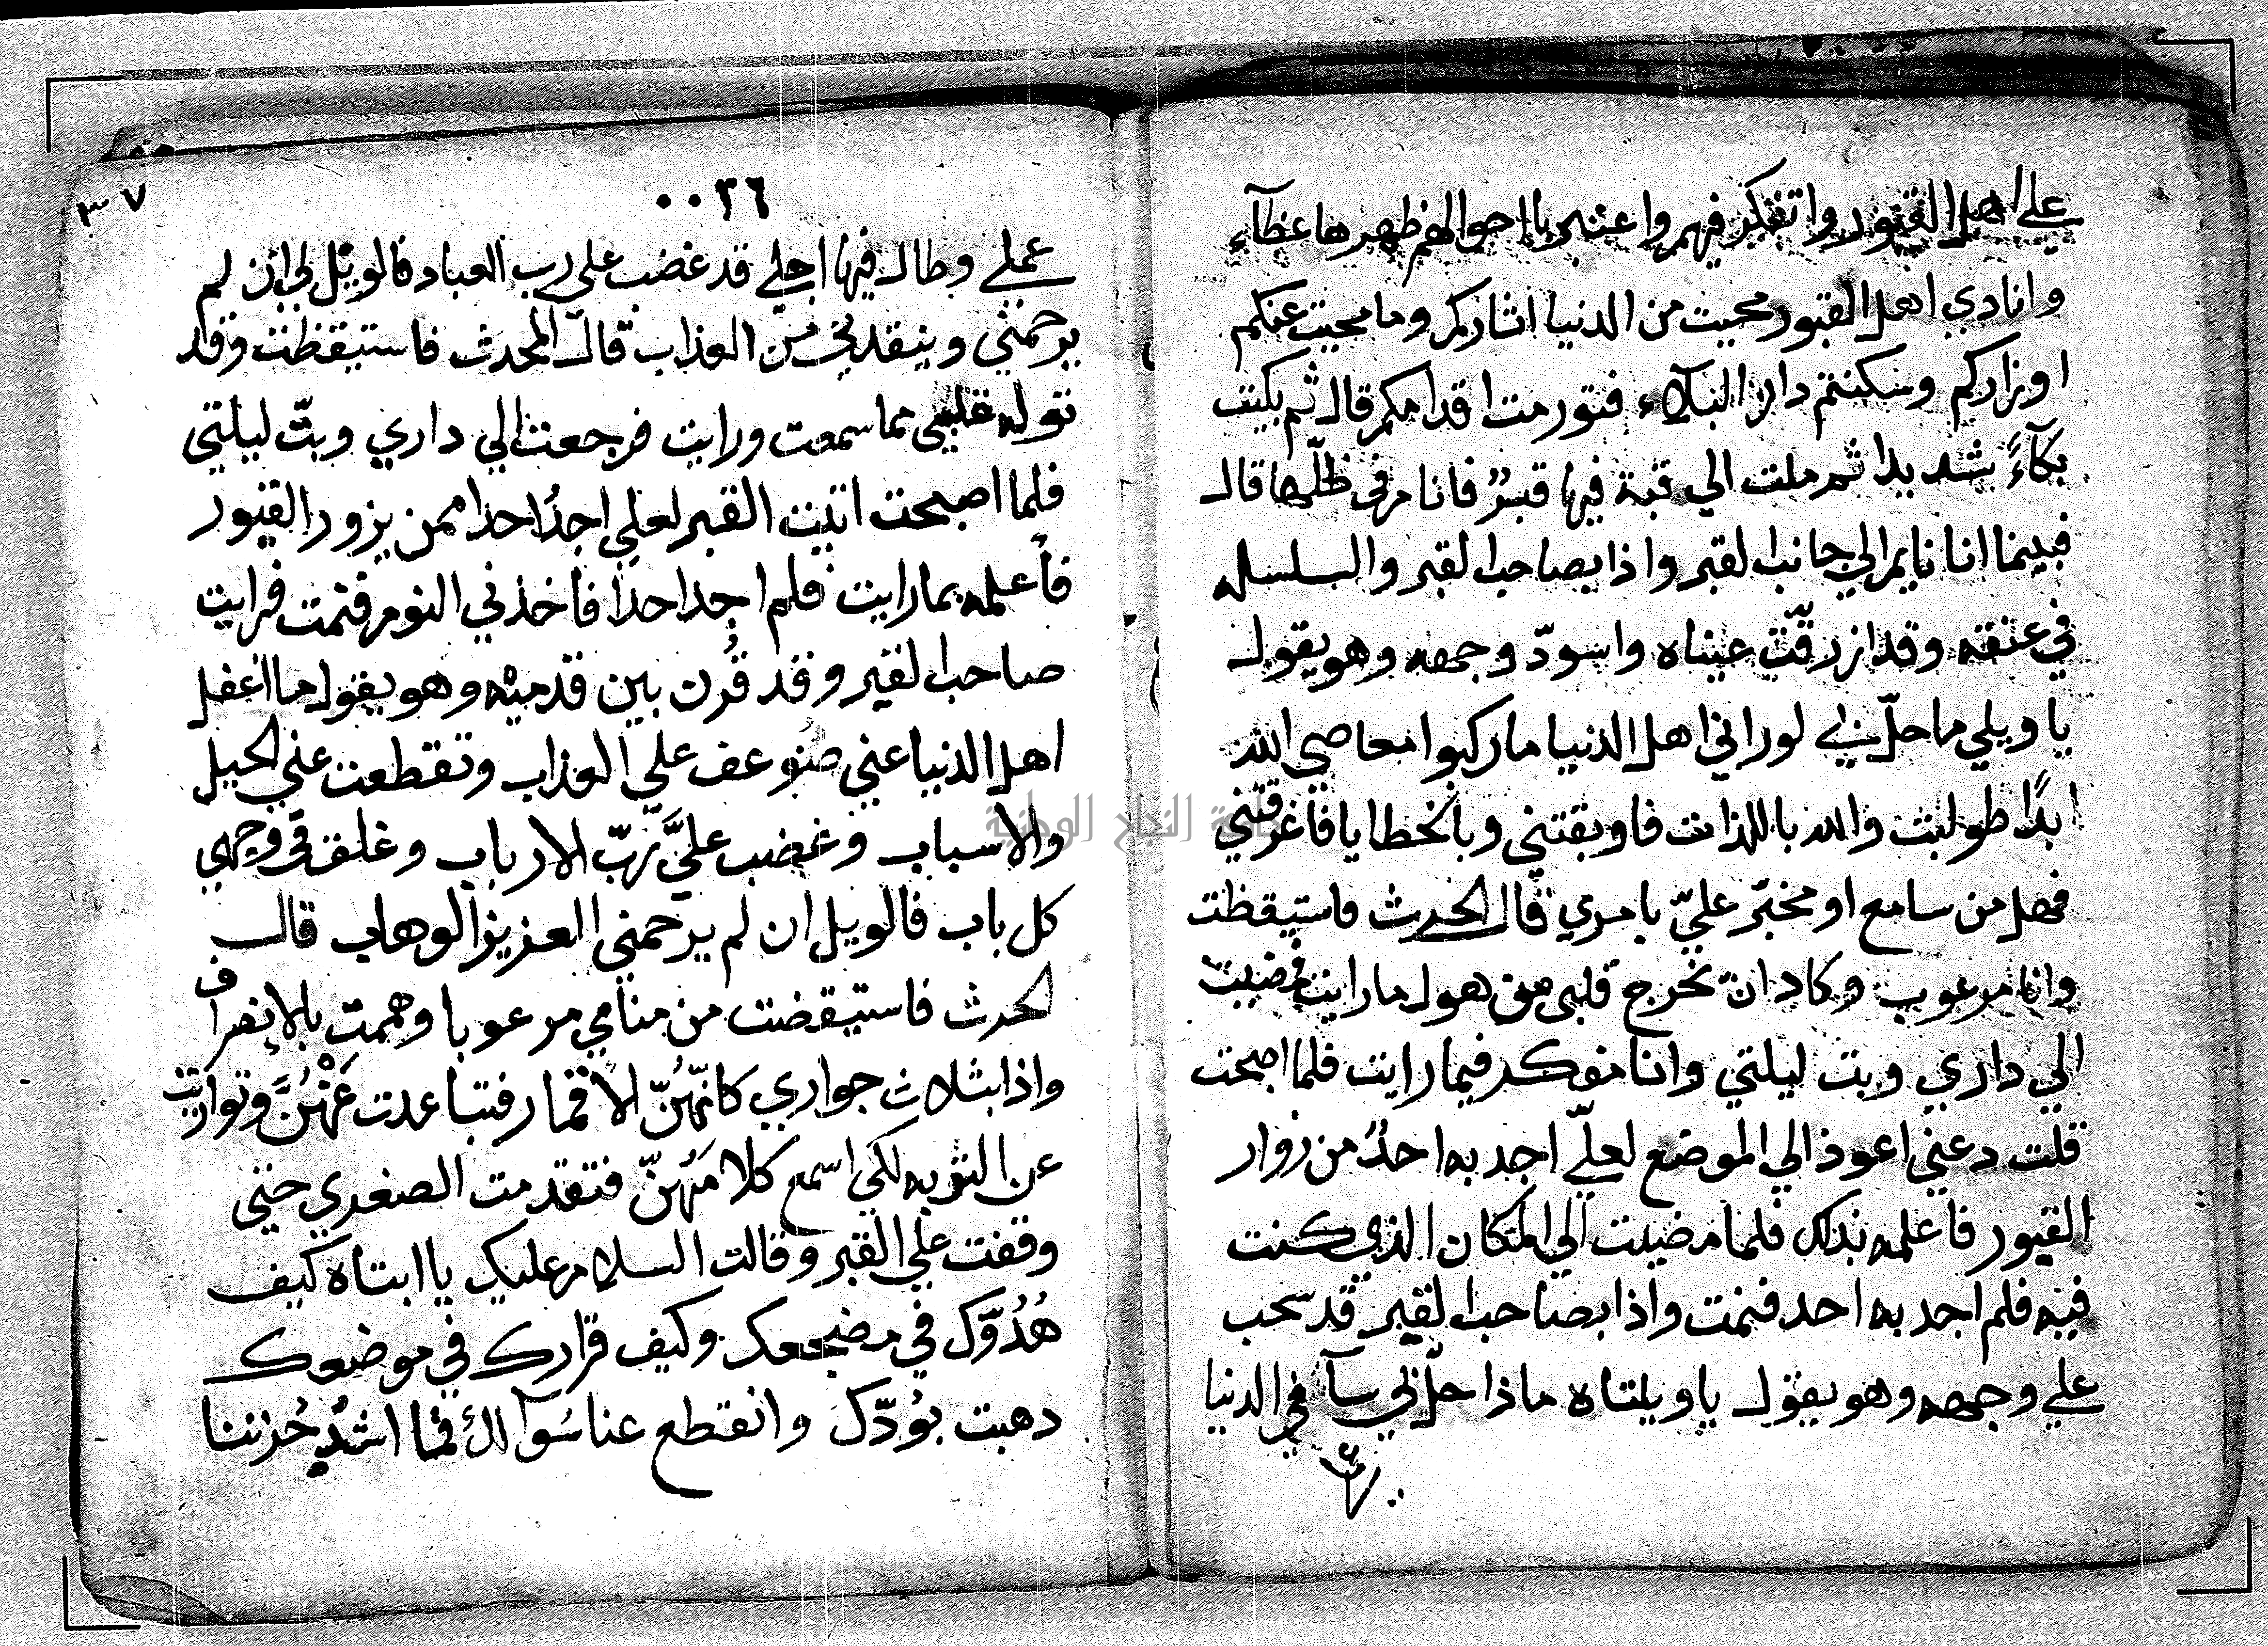 علي اهل القبور واتفكر فيهم واعتبر باحوالهم ظهرها عظآء
وانادي اهل القبور محيت من الدنيا اثاركم وما محيت عنكم
اوزاركم وسكنتم دار البلاء فتورمت اقدامكم قال ثم بكيت
بكآءً شديدا ثم ملت الي قبة فيها قبرٌ فانام في ظلّها قال
فبينما انا نايم الي جانب القبر واذا بصاحب القبر والسلسله
في عنقه وقد ازرقّت عيناه واسودّ وجهه وهو يقول
يا ويلي ما حلّ بي لو راني اهل الدنيا ما ركبوا معاصي الله
ابدًا طولبت والله باللذات فاوبقتني وبالخطايا فاغرقتني
فهل من سامع او مخبّر عليّ بامري قال المحدث فاستيقظت
وانا مرعوب وكاد ان تخرج قلبى من هول ما رايت فمضيت
الي داري وبت ليلتي وانا مفكر فيما رايت فلما اصبحت
قلت دعني اعوذ الي الموضع لعلّي اجد به احدٌ من زوار
القبور فاعلمه بذلك فلما مضيت الي المكان الذي كنت
فيه فلم اجد به احد فنمت واذا بصاحب القبر قد سحب
علي وجهه وهو يقول ياويلتاه ماذا حلّ بي سآ في الدنيا
٠٠٣٦
٣٧
عملي وطال فيها اجلي قد غضب علي رب العباد فالويل لي ان لم
يرحمني وينقدني من العذاب قال المحدث فاستيقظت وقد
توله قلبي مما سمعت ورايت فرجعت الي داري وبتّ ليلتي
فلما اصبحت اتيت القبر لعلي اجدُ احدا ممن يزور القبور
فأعلمه بما رايت فلم اجد احدًا فاخذني النوم فنمت فرايت
صاحب القبر وقد قُرن بين قدميه وهو يقول ما اغفل
اهل الدنيا عني ضوعف علي العذاب وتقطعت عني الحيل
والاسباب وغضب عليَّ ربّ الارباب وغلق في وجهي
كل باب فالويل ان لم يرحمني العزيز الوهاب قال
لمحدث فاستيقضت من منامي مرعوبا وهممت بالانصراف
واذا بثلاث جواري كانّهُنّ الاقمار فتباعدت عَنْهُنَّ وتواريت
عن التوبه لكي اسمع كلامَهُنّ فتقدمت الصغري حتي
وقفت علي القبر وقالت السلام عليك يا ابتاه كيف
هُدُوّك في مضجعك وكيف قرارك في موضعك
دهبت بوُدّك وانقطع عنا سُوآلك فما اشدّ حُزننا